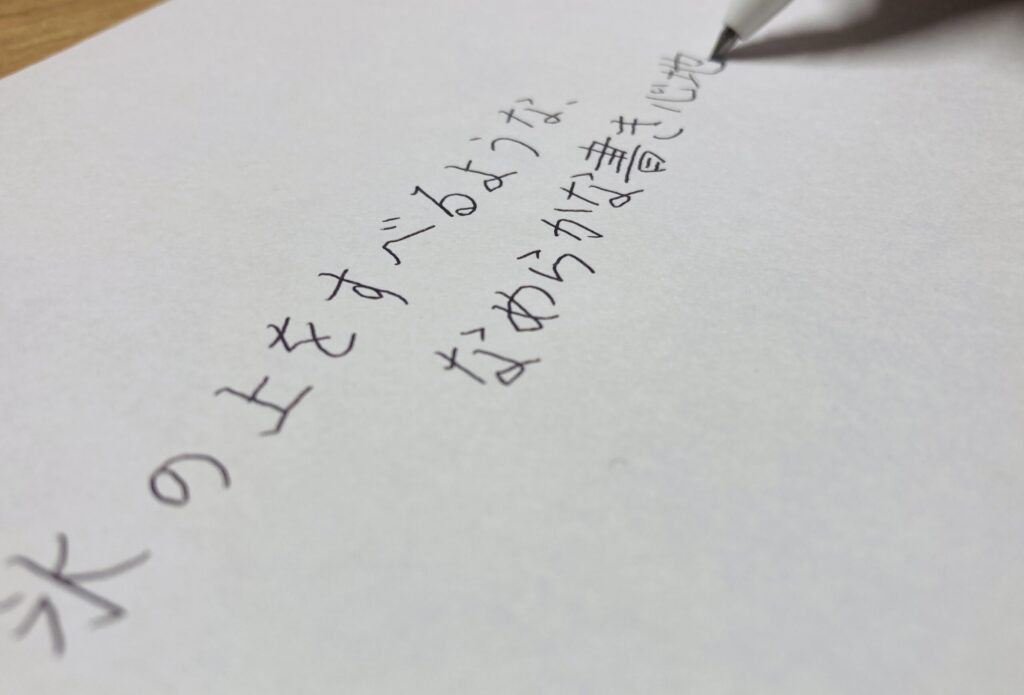 氷の上をすべるような、
なめらかな書き心地